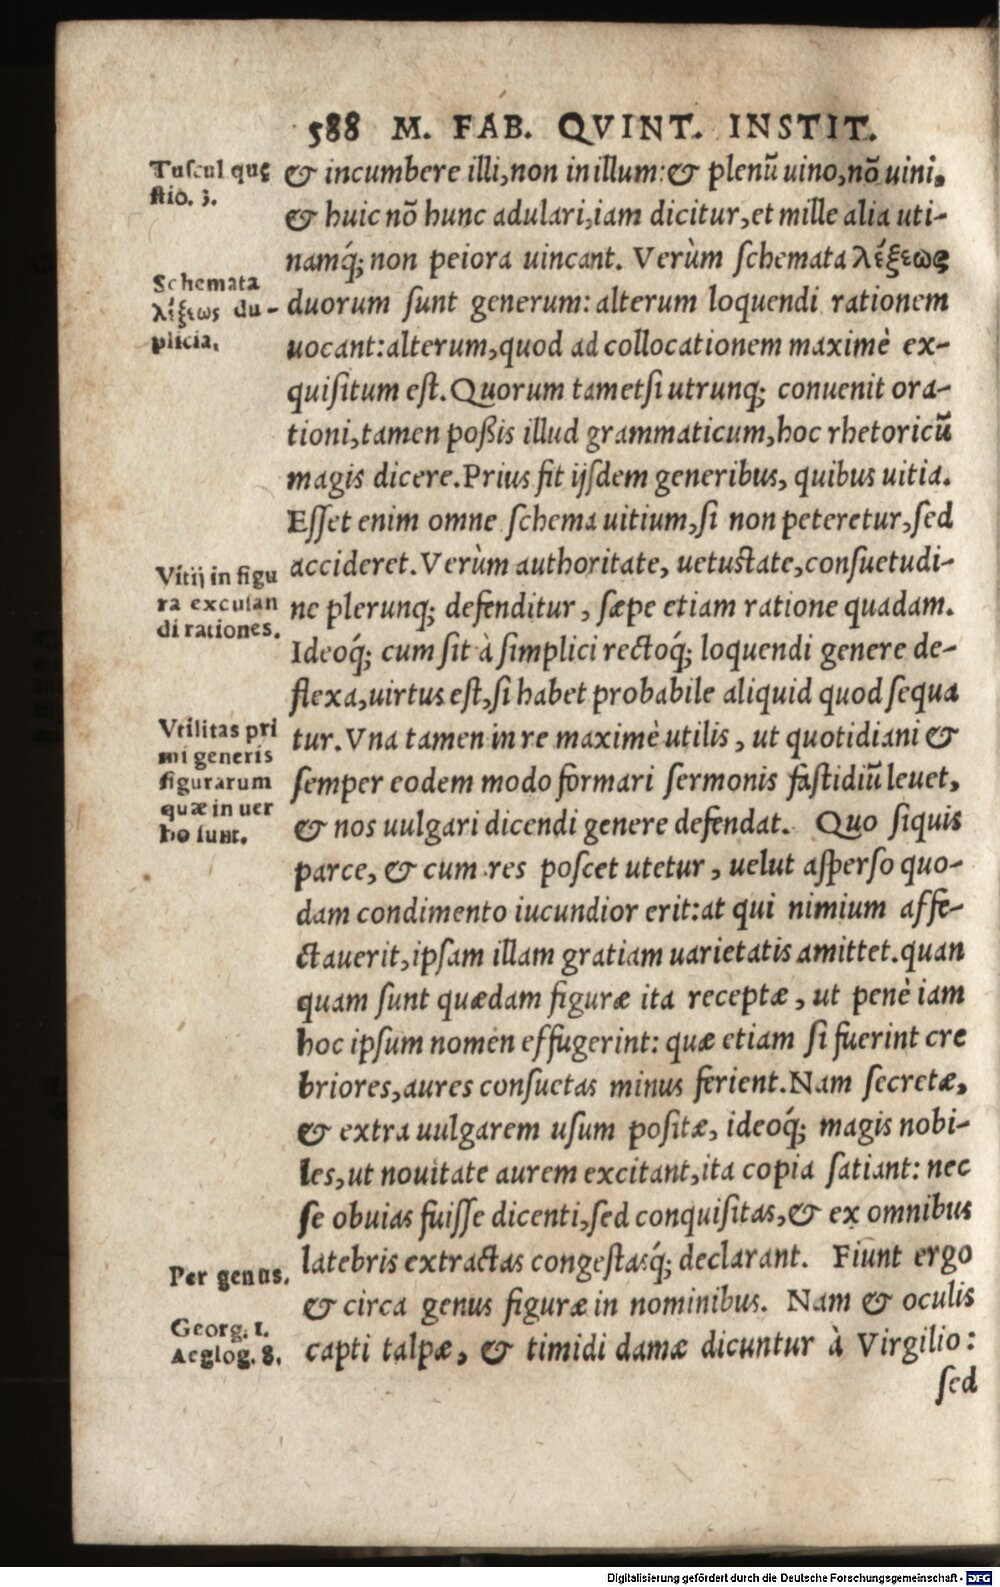 588 M. FAB. QVINT. INSTIT.
Tuscul quę
stio. 3.
& incumbere illi, non in illum: & plenũ uino, nõ uini,
& huic nõ hunc adulari, iam dicitur, et mille alia uti-
namq́; non peiora uincant. Verùm schemata λέξεως
Schemata
λέξεως du-
plicia.
duorum sunt generum: alterum loquendi rationem
uocant: alterum, quod ad collocationem maximè ex-
quisitum est. Quorum tametsi utrunq; conuenit ora-
tioni, tamen poßis illud grammaticum, hoc rhetoricũ
magis dicere. Prius fit ijsdem generibus, quibus uitia.
Esset enim omne schema uitium, si non peteretur, sed
Vitij in figu
ra excusan
di rationes.
accideret. Verùm authoritate, uetustate, consuetudi-
ne plerunq; defenditur, sæpe etiam ratione quadam.
Ideoq́; cum sit à simplici rectoq́; loquendi genere de-
flexa, uirtus est, si habet probabile aliquid quod sequa
Vtilitas pri
mi generis
figurarum
quæ in uer
bo sunt.
tur. Vna tamen in re maximè utilis, ut quotidiani &
semper eodem modo formari sermonis fastidiũ leuet,
& nos uulgari dicendi genere defendat. Quo siquis
parce, & cum res poscet utetur, uelut asperso quo-
dam condimento iucundior erit: at qui nimium affe-
ctauerit, ipsam illam gratiam uarietatis amittet. quan
quam sunt quædam figuræ ita receptæ, ut penè iam
hoc ipsum nomen effugerint: quæ etiam si fuerint cre
briores, aures consuetas minus ferient. Nam secretæ,
& extra uulgarem usum positæ, ideoq́; magis nobi-
les, ut nouitate aurem excitant, ita copia satiant: nec
se obuias fuisse dicenti, sed conquisitas, & ex omnibus
latebris extractas congestasq́; declarant. Fiunt ergo
Per genus.
& circa genus figuræ in nominibus. Nam & oculis
Georg. 1.
Aeglog. 8.
capti talpæ, & timidi damæ dicuntur à Virgilio:
sed
Digitalisierung gefördert durch die Deutsche Forschungsgemeinschaft - DFG